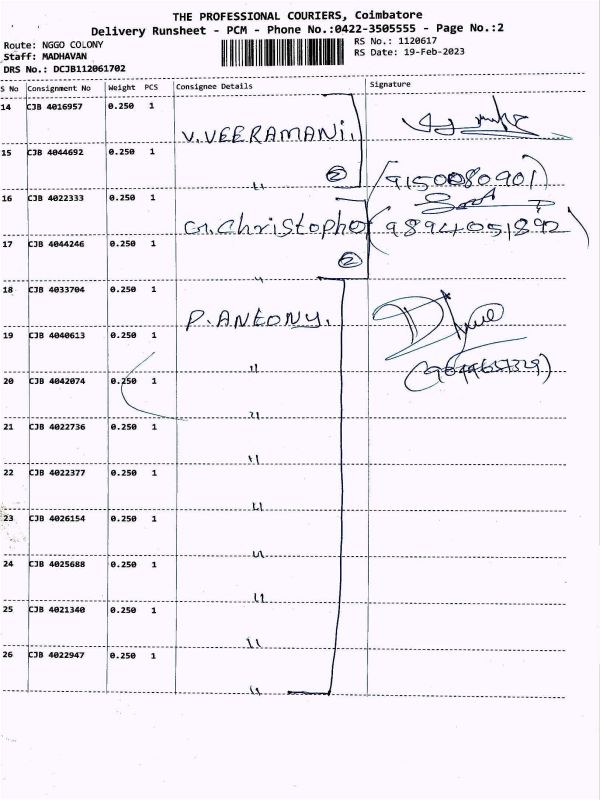 THE PROFESSIONAL COURIERS, Coimbatore
Delivery Runsheet - PCM - Phone No.:0422-3505555 - Page No.:2
Route: NGGO COLONY
Staff: MADHAVAN
DRS No.: DCJB112061702
RS No.: 1120617
RS Date: 19-Feb-2023
S No Consignment No Weight PCS Consignee Details Signature
14 CJB 4016957 0.250 1
V.VEERAMANI.
15 CJB 4044692 0.250 1
② (9150080901)
"
16 CJB 4022333 0.250 1
G.Christopho (9894051892)
17 CJB 4044246 0.250 1
②
"
18 CJB 4033704 0.250 1
P. ANtony.
19 CJB 4040613 0.250 1
"
20 CJB 4042074 0.250 1
"
21 CJB 4022736 0.250 1
"
22 CJB 4022377 0.250 1
"
23 CJB 4026154 0.250 1
"
24 CJB 4025688 0.250 1
"
25 CJB 4021340 0.250 1
"
26 CJB 4022947 0.250 1
"